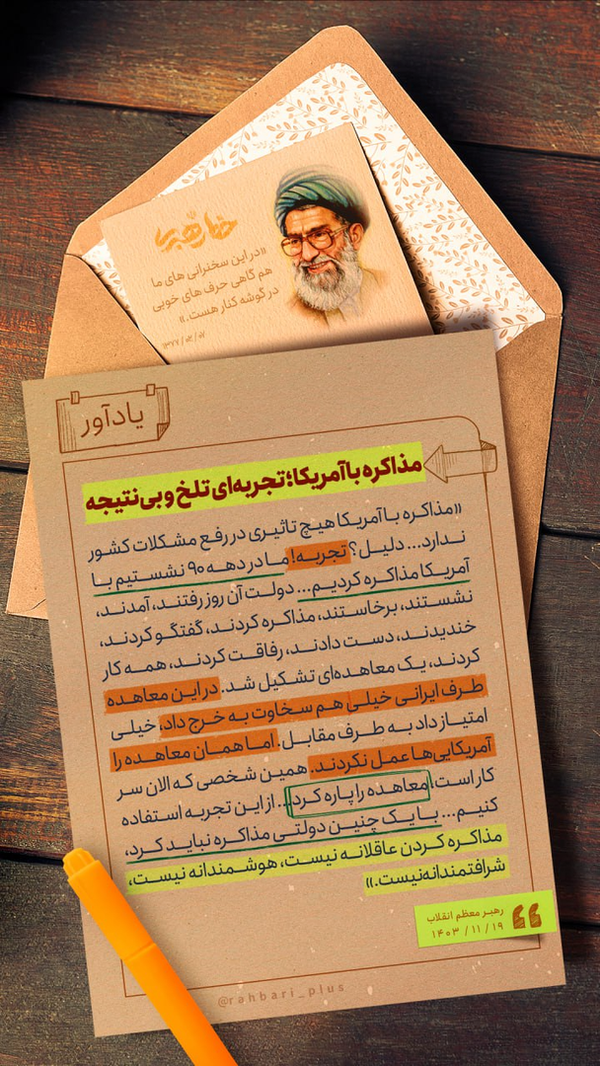 خط رهبری
«در این سخنرانی های ما
هم گاهی حرف های خوبی
در گوشه کنار هست.»
۱۳۷۷ / ۰۲ / ۰۷
یادآور
مذاکره با آمریکا؛ تجربه‌ای تلخ و بی‌نتیجه
«مذاکره با آمریکا هیچ تاثیری در رفع مشکلات کشور
ندارد... دلیل؟ تجربه! ما در دهه ۹۰ نشستیم با
آمریکا مذاکره کردیم... دولت آن روز رفتند، آمدند،
نشستند، برخاستند، مذاکره کردند، گفتگو کردند،
خندیدند، دست دادند، رفاقت کردند، همه کار
کردند، یک معاهده‌ای تشکیل شد. در این معاهده
طرف ایرانی خیلی هم سخاوت به خرج داد، خیلی
امتیاز داد به طرف مقابل. اما همان معاهده را
آمریکایی‌ها عمل نکردند. همین شخصی که الان سر
کار است، معاهده را پاره کرد... از این تجربه استفاده
کنیم... با یک چنین دولتی مذاکره نباید کرد،
مذاکره کردن عاقلانه نیست، هوشمندانه نیست،
شرافتمندانه نیست.»
رهبر معظم انقلاب
۱۴۰۳ / ۱۱ / ۱۹
@rahbari_plus